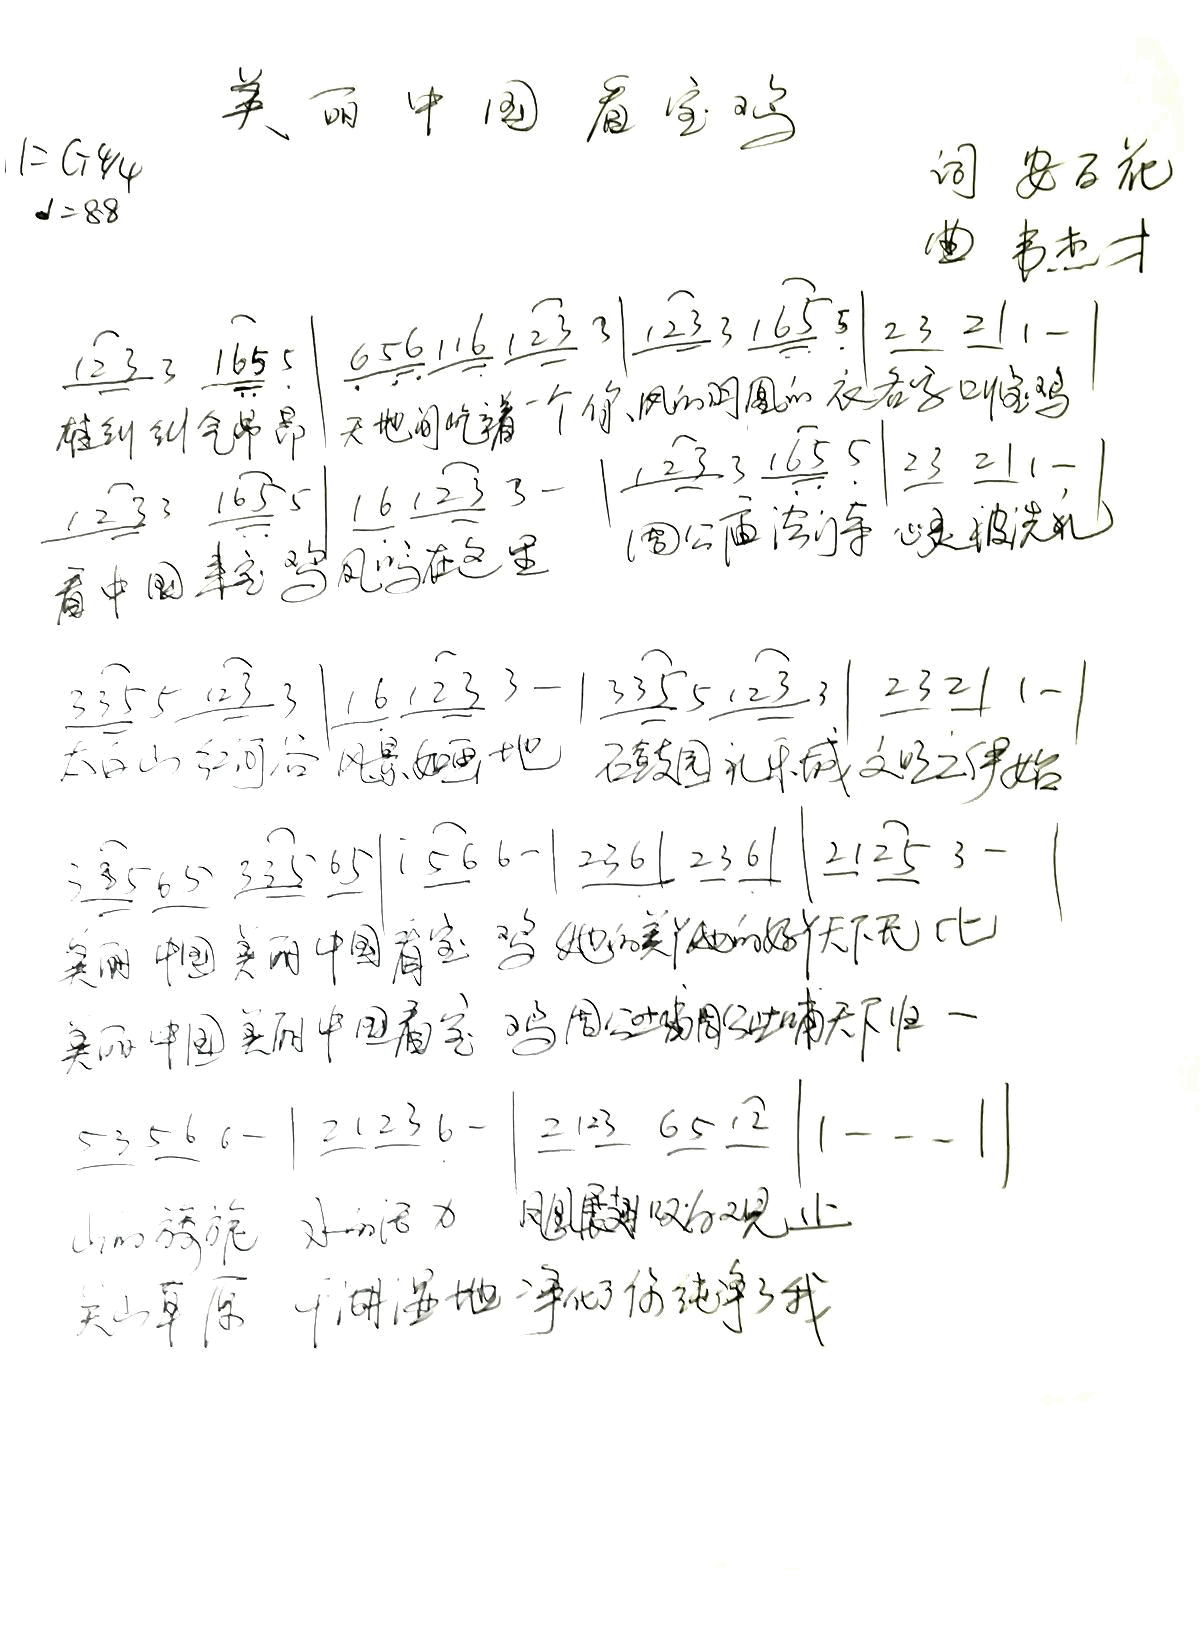 美丽中国看宝鸡
1=G 4/4
♩=88
词 安百花
曲 韦杰才
1233 1655 | 656116 1233 3 | 1233 1655 | 23 21 1 - |
雄纠纠气昂昂 天地间吃着一个你 凤的 凰的衣名字叫宝鸡
1233 1655 | 16 123 3 - | 1233 1655 | 23 21 1 - |
看中国来宝鸡凤鸣在这里 周公庙法门寺 心灵被洗礼
3355 1233 | 16 123 3 - | 3355 1233 | 2321 1 - |
太白山红河谷 风景如画地 石鼓园礼乐城 文明之伊始
3 3565 33565 | i 56 6 - | 2361 2361 | 2125 3 - |
美丽中国美丽中国看宝鸡 她的美丫她的好丫天下无比
美丽中国美丽中国看宝鸡周公吐哺周公吐哺天下归一
5356 6 - | 2123 6 - | 2123 65 12 | 1 - - - ||
山的旖旎 水的活力 凤凰展翅叹为观止
关山草原 千湖湿地 净化了你纯净了我